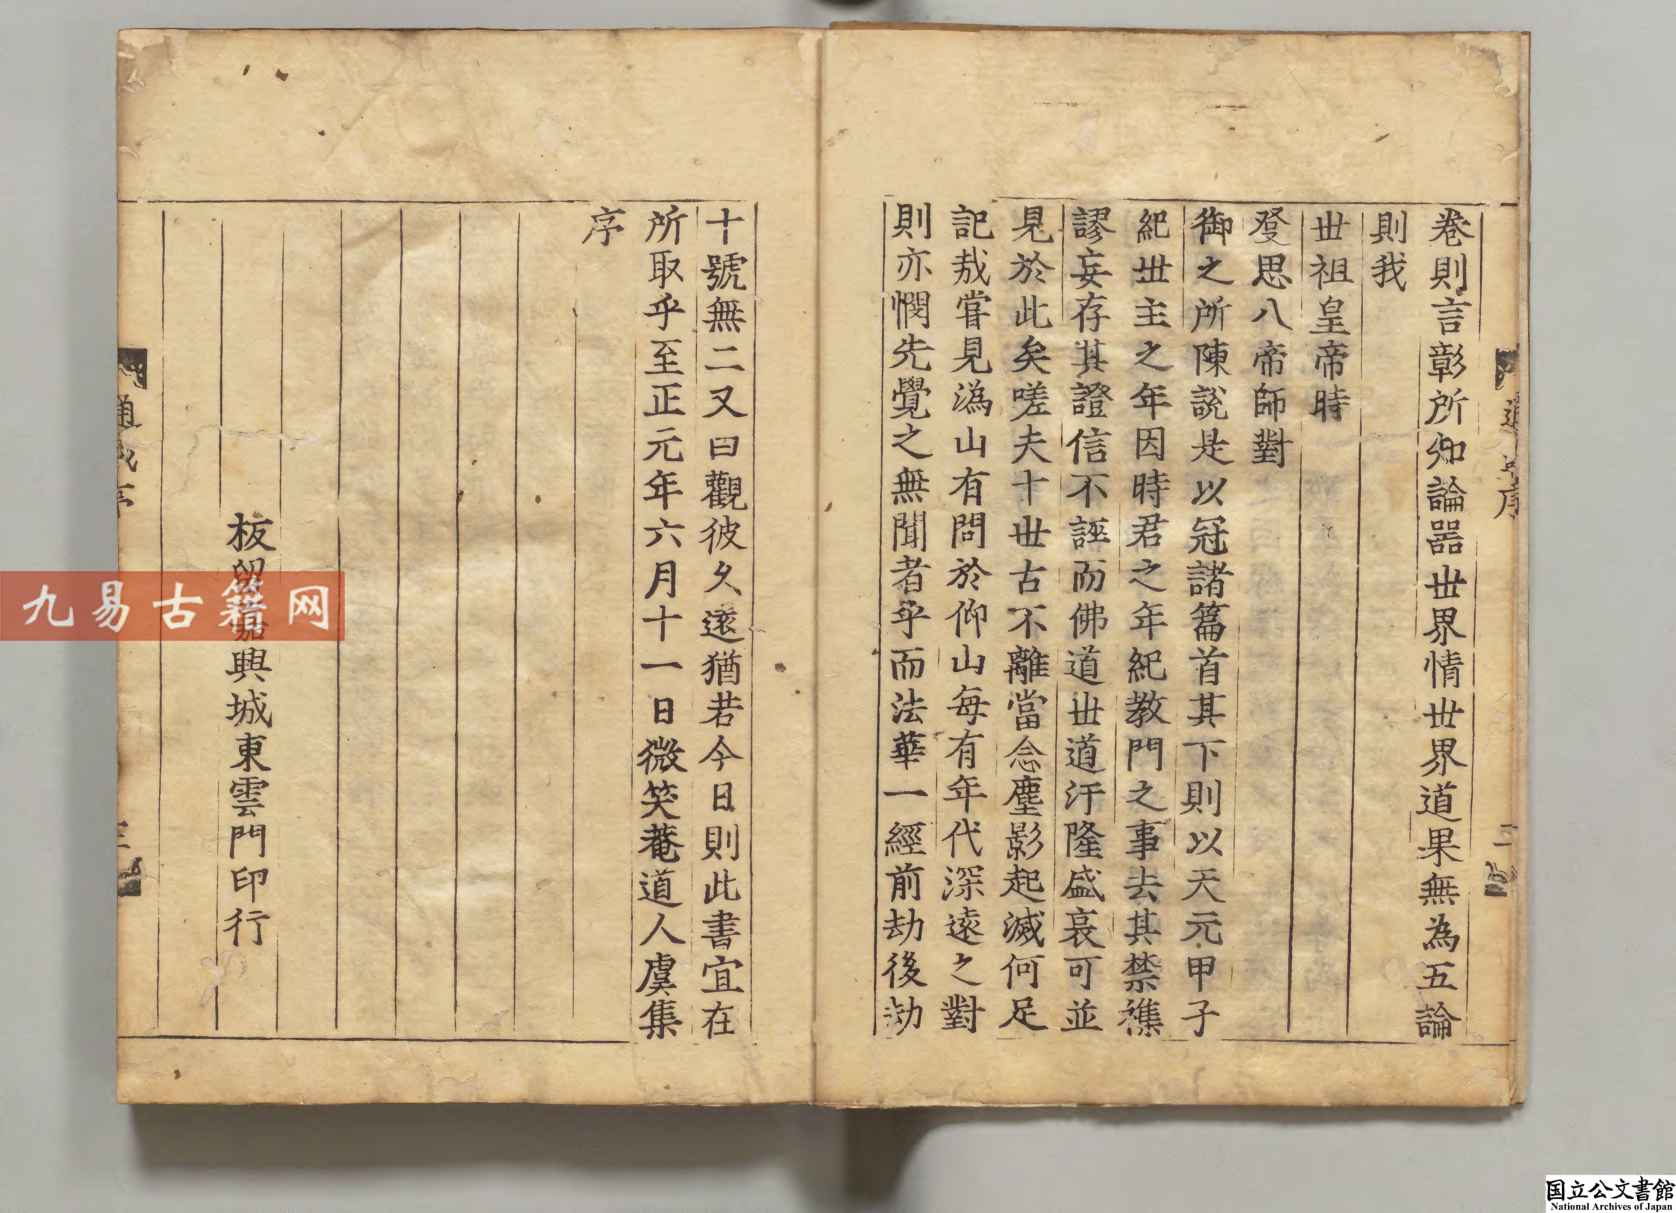 卷則言彰所知論器世界情世界道果無為五論
則我
世祖皇帝時
發思八帝師對
御之所陳說是以冠諸篇首其下則以天元甲子
紀世主之年因時君之年紀教門之事去其禁襍
謬妄存其證信不誣而佛道世道汙隆盛衰可並
見於此矣嗟夫十世古不離當念塵影起滅何足
記哉甞見溈山有問於仰山每有年代深遠之對
則亦憫先覺之無聞者乎而法華一經前劫後劫
十號無二又曰觀彼久遠猶若今日則此書宜在
所取乎至正元年六月十一日微笑菴道人虞集
序
板留嘉興城東雲門印行
九易古籍网
国立公文書館
National Archives of Japan